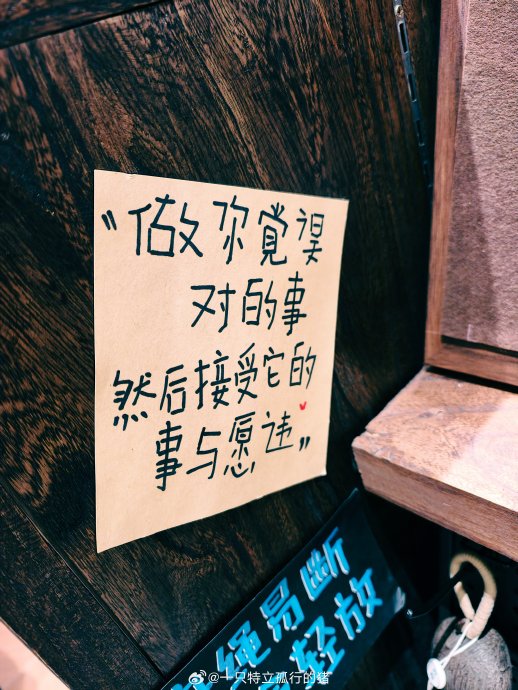 “做你覺得
对的事
然后接受它的
事与愿违”
绳易斷
轻放
@一只特立孤行的猪